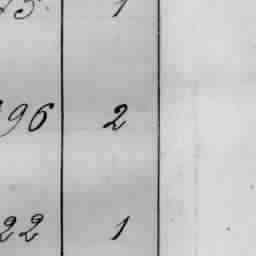 15 1
196 2
22 1